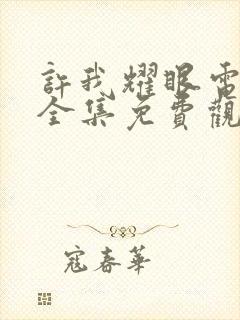 許我耀眼電
全集免費觀
寇春華